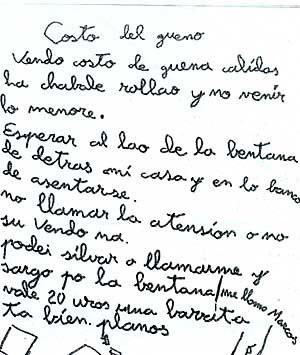 Costo del gueno
Vendo costo de guena calidas
ha chabale rollao y no venir
lo menore.
Esperar al lao de la bentana
de detras mi casa y en lo banco
de asentar-se.
no llamar la atensión o no
su Vendo na.
podei silvar o llamarme y
sargo po la bentana/me llamo Marcos
vale 20 uros una barrita
ta bien. planos